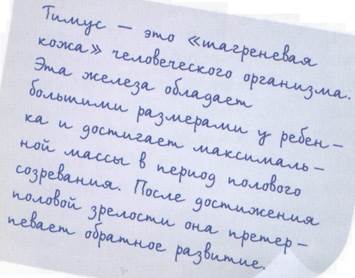 Тимус – это «шагреневая
кожа» человеческого организма.
Эта железа обладает
большими размерами у ребен-
ка и достигает максималь-
ной массы в период полового
созревания. После достижения
половой зрелости она претер-
певает обратное развитие.